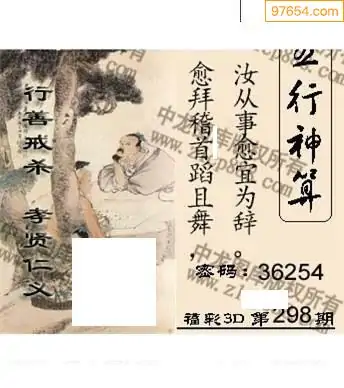 97654.com
五行神算
汝从事愈宜为辞。
愈拜稽首蹈且舞，
行善戒杀 孝贤仁义
密码：36254
福彩3D 第298期